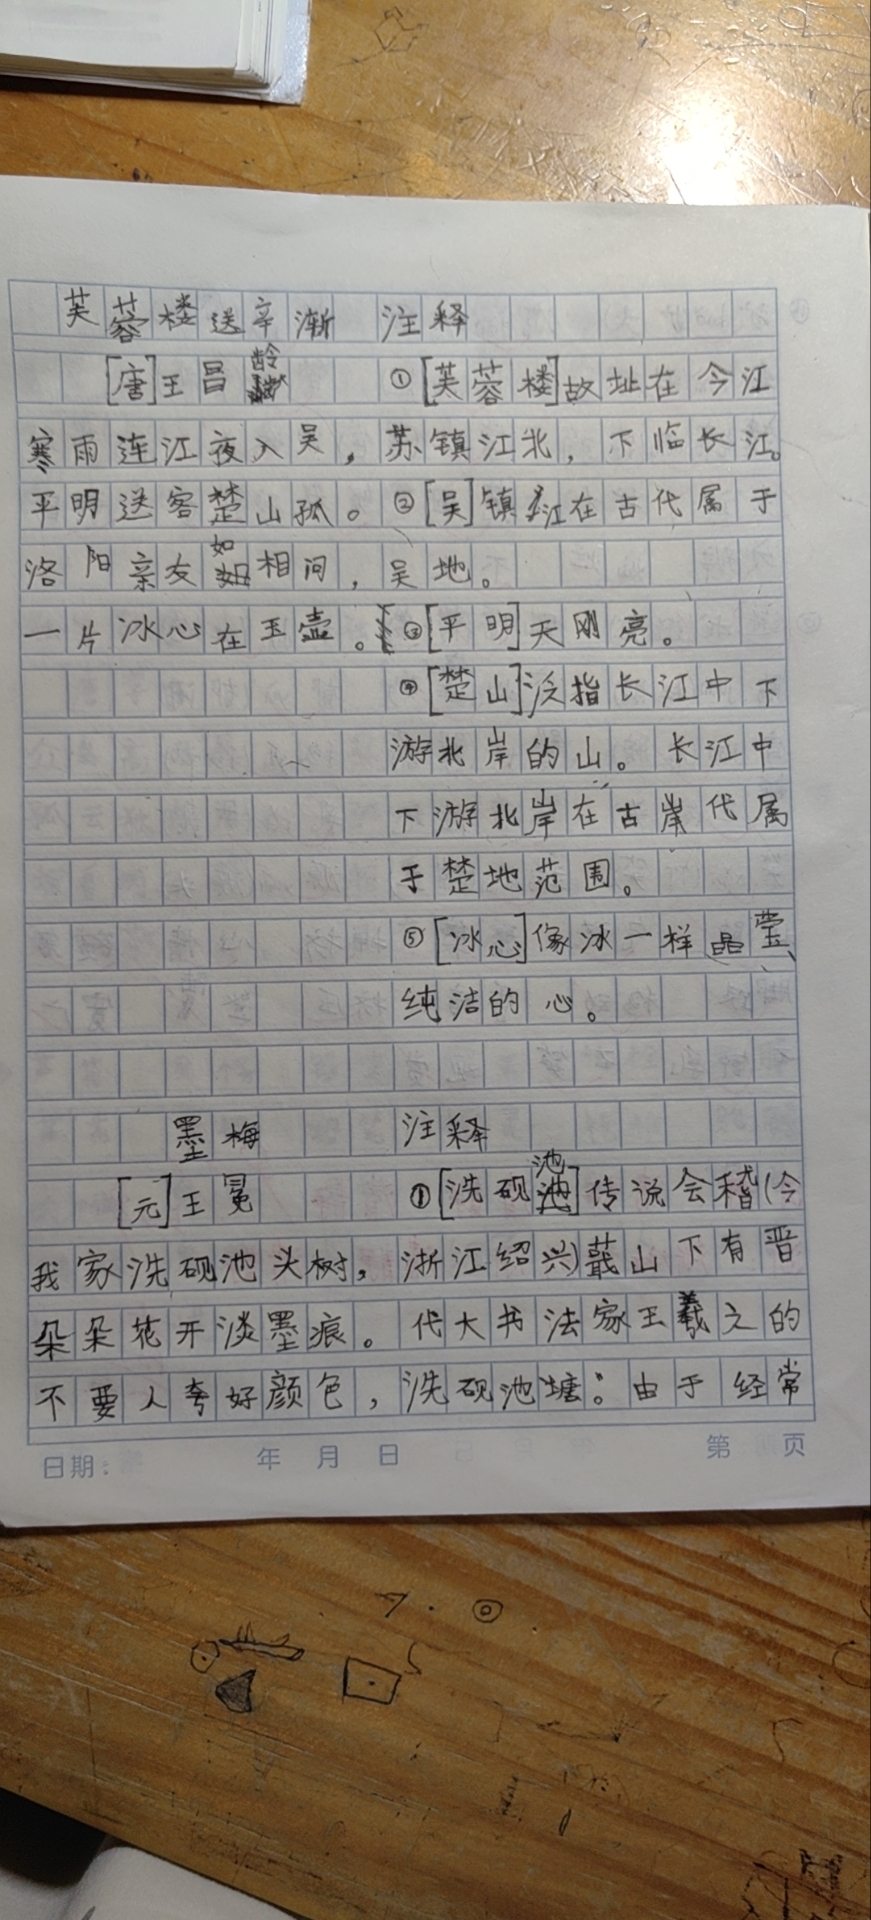 芙蓉楼送辛渐
[唐]王昌龄
寒雨连江夜入吴，
平明送客楚山孤。
洛阳亲友如相问，
一片冰心在玉壶。
注释
①[芙蓉楼]故址在今江
苏镇江北，下临长江。
②[吴]镇江在古代属于
吴地。
③[平明]天刚亮。
④[楚山]泛指长江中下
游北岸的山。长江中
下游北岸在古岸代属
于楚地范围。
⑤[冰心]像冰一样晶莹、
纯洁的心。
墨梅
[元]王冕
我家洗砚池头树，
朵朵花开淡墨痕。
不要人夸好颜色，
注释
①[洗砚池]传说会稽(今
浙江绍兴)蕺山下有晋
代大书法家王羲之的
洗砚池塘：由于经常
日期： 年 月 日
第 页